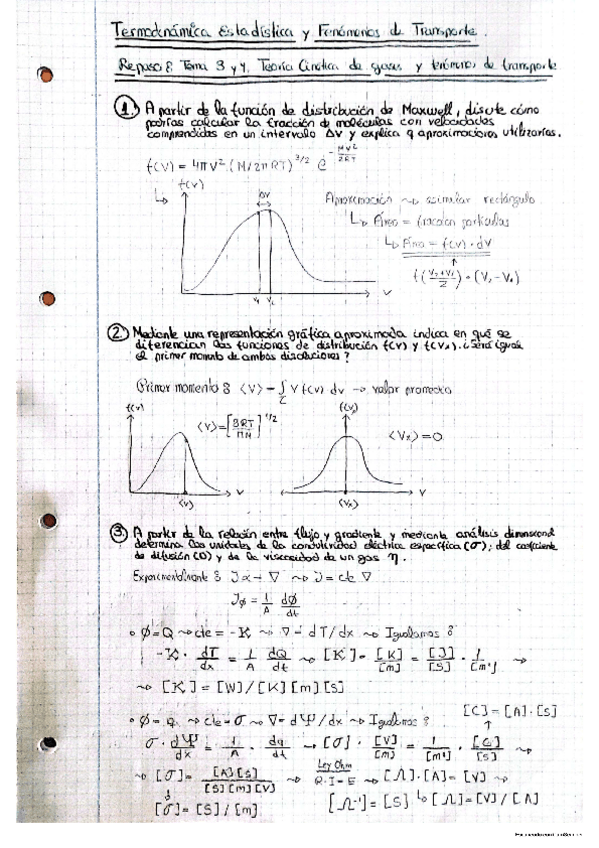 Termodinámica Estadística y Fenómenos de Transporte.
Repaso: Tema 3 y 4. Teoría Cinética de gases y fenómenos de transporte
1. A partir de la función de distribución de Maxwell, discute cómo
podrías calcular la fracción de moléculas con velocidades
comprendidas en un intervalo ΔV y explica q aproximaciones utilizarías.
f(V) = 4πV² · (M/2πRT)^3/2 e^-MV²/2RT
f(V)
ΔV
Aproximación ⤳ asimilar rectángulo
↳ Área = fracción partículas
↳ Área = f(V) · dV
f((V₂+V₁)/2) · (V₂-V₁)
V
2. Mediante una representación gráfica aproximada indica en qué se
diferencian las funciones de distribución f(V) y f(Vx). ¿Será igual
el primer momento de ambas
Primer momento : <V> = ∫ V f(V) dV → valor promedio
f(V)
<V> =
1/2
<Vx> = 0
V
V
<V>
<Vx>
3. A partir de la relación entre flujo y gradiente y mediante análisis dimensional
determina las unidades de la conductividad eléctrica específica (σ); del coeficiente
de difusión (D) y de la viscosidad de un gas η.
Experimentalmente : J α - ∇ ⤳ J = cte ∇
Jφ = 1/A dφ/dt
• φ = Q ⤳ cte = -K ⤳ ∇ = dT/dx ⤳ Igualamos :
-K · dT/dx = 1/A · dQ/dt ⤳ [K] · [K]/[m] = [J]/[S] · 1/[m²] ⤳
⤳ [K] = [W]/[K][m][S]
[C] = [A]·[S]
• φ = q ⤳ cte = σ ⤳ ∇ = dΨ/dx ⤳ Igualamos :
σ · dΨ/dx = 1/A · dq/dt → [σ] · [V]/[m] = 1/[m²] · [C]/[S]
⤳ [σ] = [A][S]/[S][m][V] ⤳ Ley Ohm R·I=E ⤳ [Ω]·[A] = [V] ⤳
[σ] = [S]/[m]
[Ω⁻¹] = [S] ↳ [Ω] = [V]/[A]